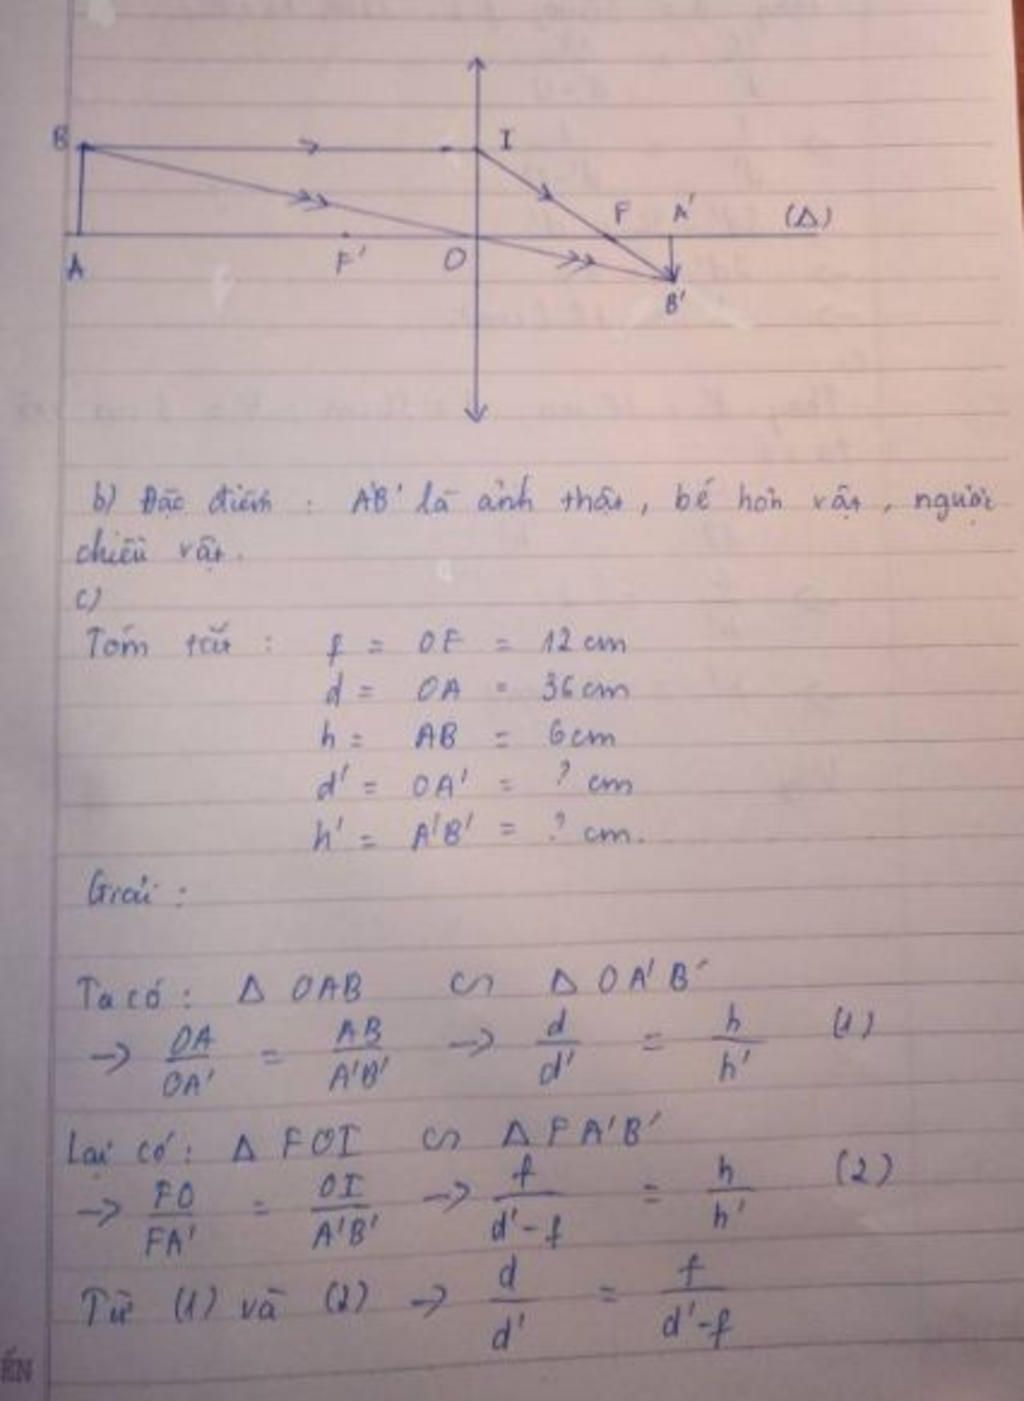 B
I
F
A'
(Δ)
A
F'
O
B'
b) Đặc điểm : A'B' là ảnh thật, bé hơn vật, ngược
chiều vật.
c)
Tóm tắt : f = OF = 12 cm
d = OA = 36 cm
h = AB = 6 cm
d' = OA' = ? cm
h' = A'B' = ? cm.
Giải :
Ta có : Δ OAB ∽ Δ OA'B'
→ OA/OA' = AB/A'B' → d/d' = h/h' (1)
Lại có : Δ FOI ∽ Δ FA'B'
→ FO/FA' = OI/A'B' → f/d'-f = h/h' (2)
Từ (1) và (2) → d/d' = f/d'-f